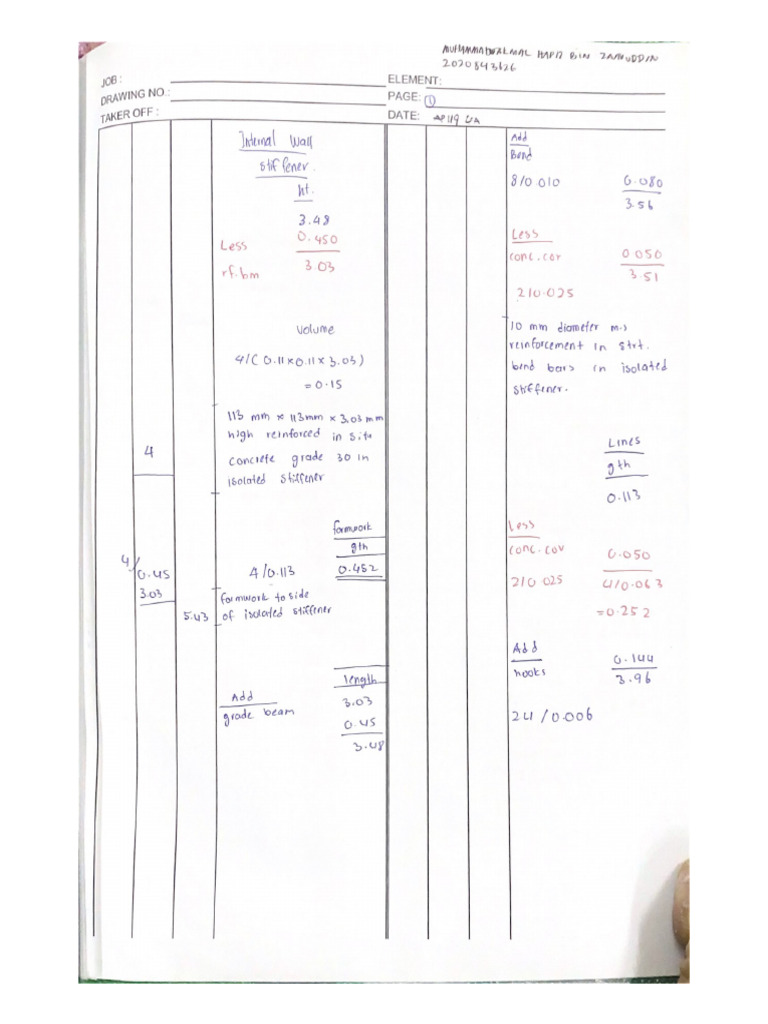 2020843626
JOB :
DRAWING NO.:
TAKER OFF :
ELEMENT:
PAGE: 1
DATE:
Internal Wall
stiffener.
ht.
3.48
Less 0.450
rf.bm 3.03
Volume
4/( 0.11 x 0.11 x 3.03 )
= 0.15
4
113 mm x 113mm x 3.03 mm
high reinforced in situ
concrete grade 30 in
isolated stiffener
formwork
gth
4/0.113 0.452
4/
0.45
3.03
5.43
formwork to side
of isolated stiffener
length
Add 3.03
grade beam 0.45
3.48
Add
Bend
8/0.010 0.080
3.56
Less
conc.cov 0.050
3.51
2/0.025
10 mm diameter m.s
reinforcement in strt.
bend bars in isolated
stiffener.
Lines
gth
0.113
Less
conc.cov 0.050
2/0.025 4/0.063
=0.252
Add 0.144
hooks 3.96
24/0.006